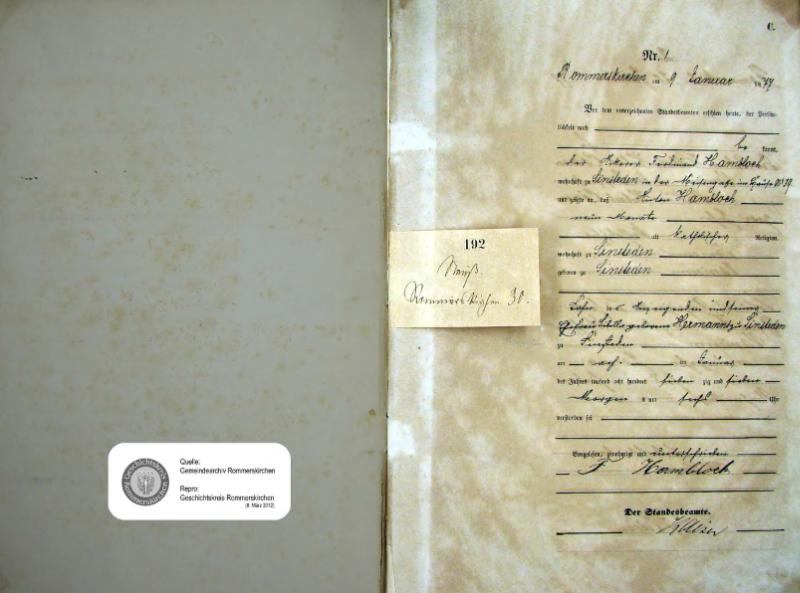 Quelle:
Gemeindearchiv Rommerskirchen
Repro:
Geschichtskreis Rommerskirchen
(8. März 2012)
192
Neuß
Rommerskirchen 30.
C.
Nr. 1
Rommerskirchen am 9 Januar 1877
Vor dem unterzeichneten Standesbeamten erschien heute, der Persön-
lichkeit nach
be kannt,
der Ackerer Ferdinand Hambloch
wohnhaft zu Sinsteden in der
und zeigte an, daß Anton Hambloch
neun Monate
alt katholischer Religion,
wohnhaft zu Sinsteden
geboren zu Sinsteden
Sohn des Anzeigenden und seiner
Ehefrau geborene Hermanns zu Sinsteden
zu Sinsteden
am acht im Januar
des Jahres tausend acht hundert sieben zig und sieben
Morgen s um sechs Uhr
verstorben sei
Vorgelesen, genehmigt und unterschrieben
F Hambloch
Der Standesbeamte.